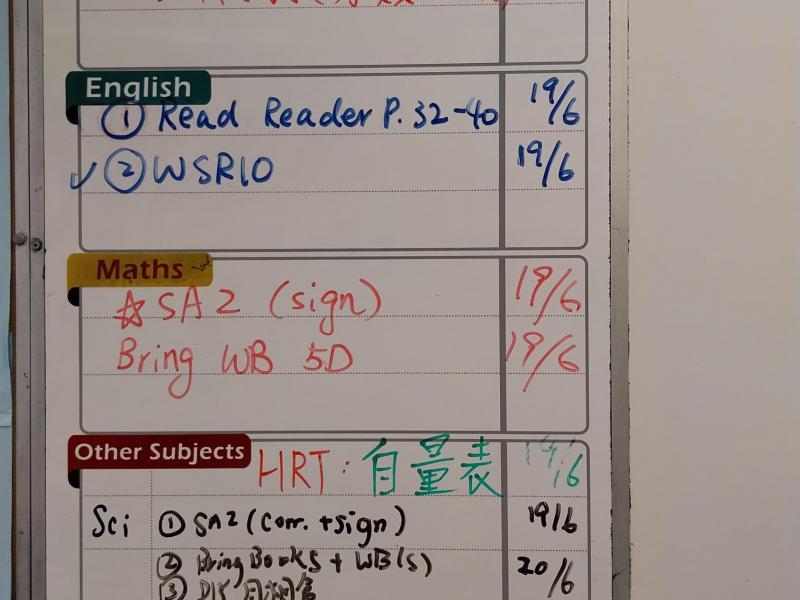 English
① Read Reader P. 32-40 19/6
✓ ② WSR10 19/6
Maths
☆ SA2 (sign) 19/6
Bring WB 5D 19/6
Other Subjects
HRT: 自量表 19/6
Sci ① SA2 (Corr. + sign) 19/6
② Bring Books + WB(s) 20/6
③ DIY